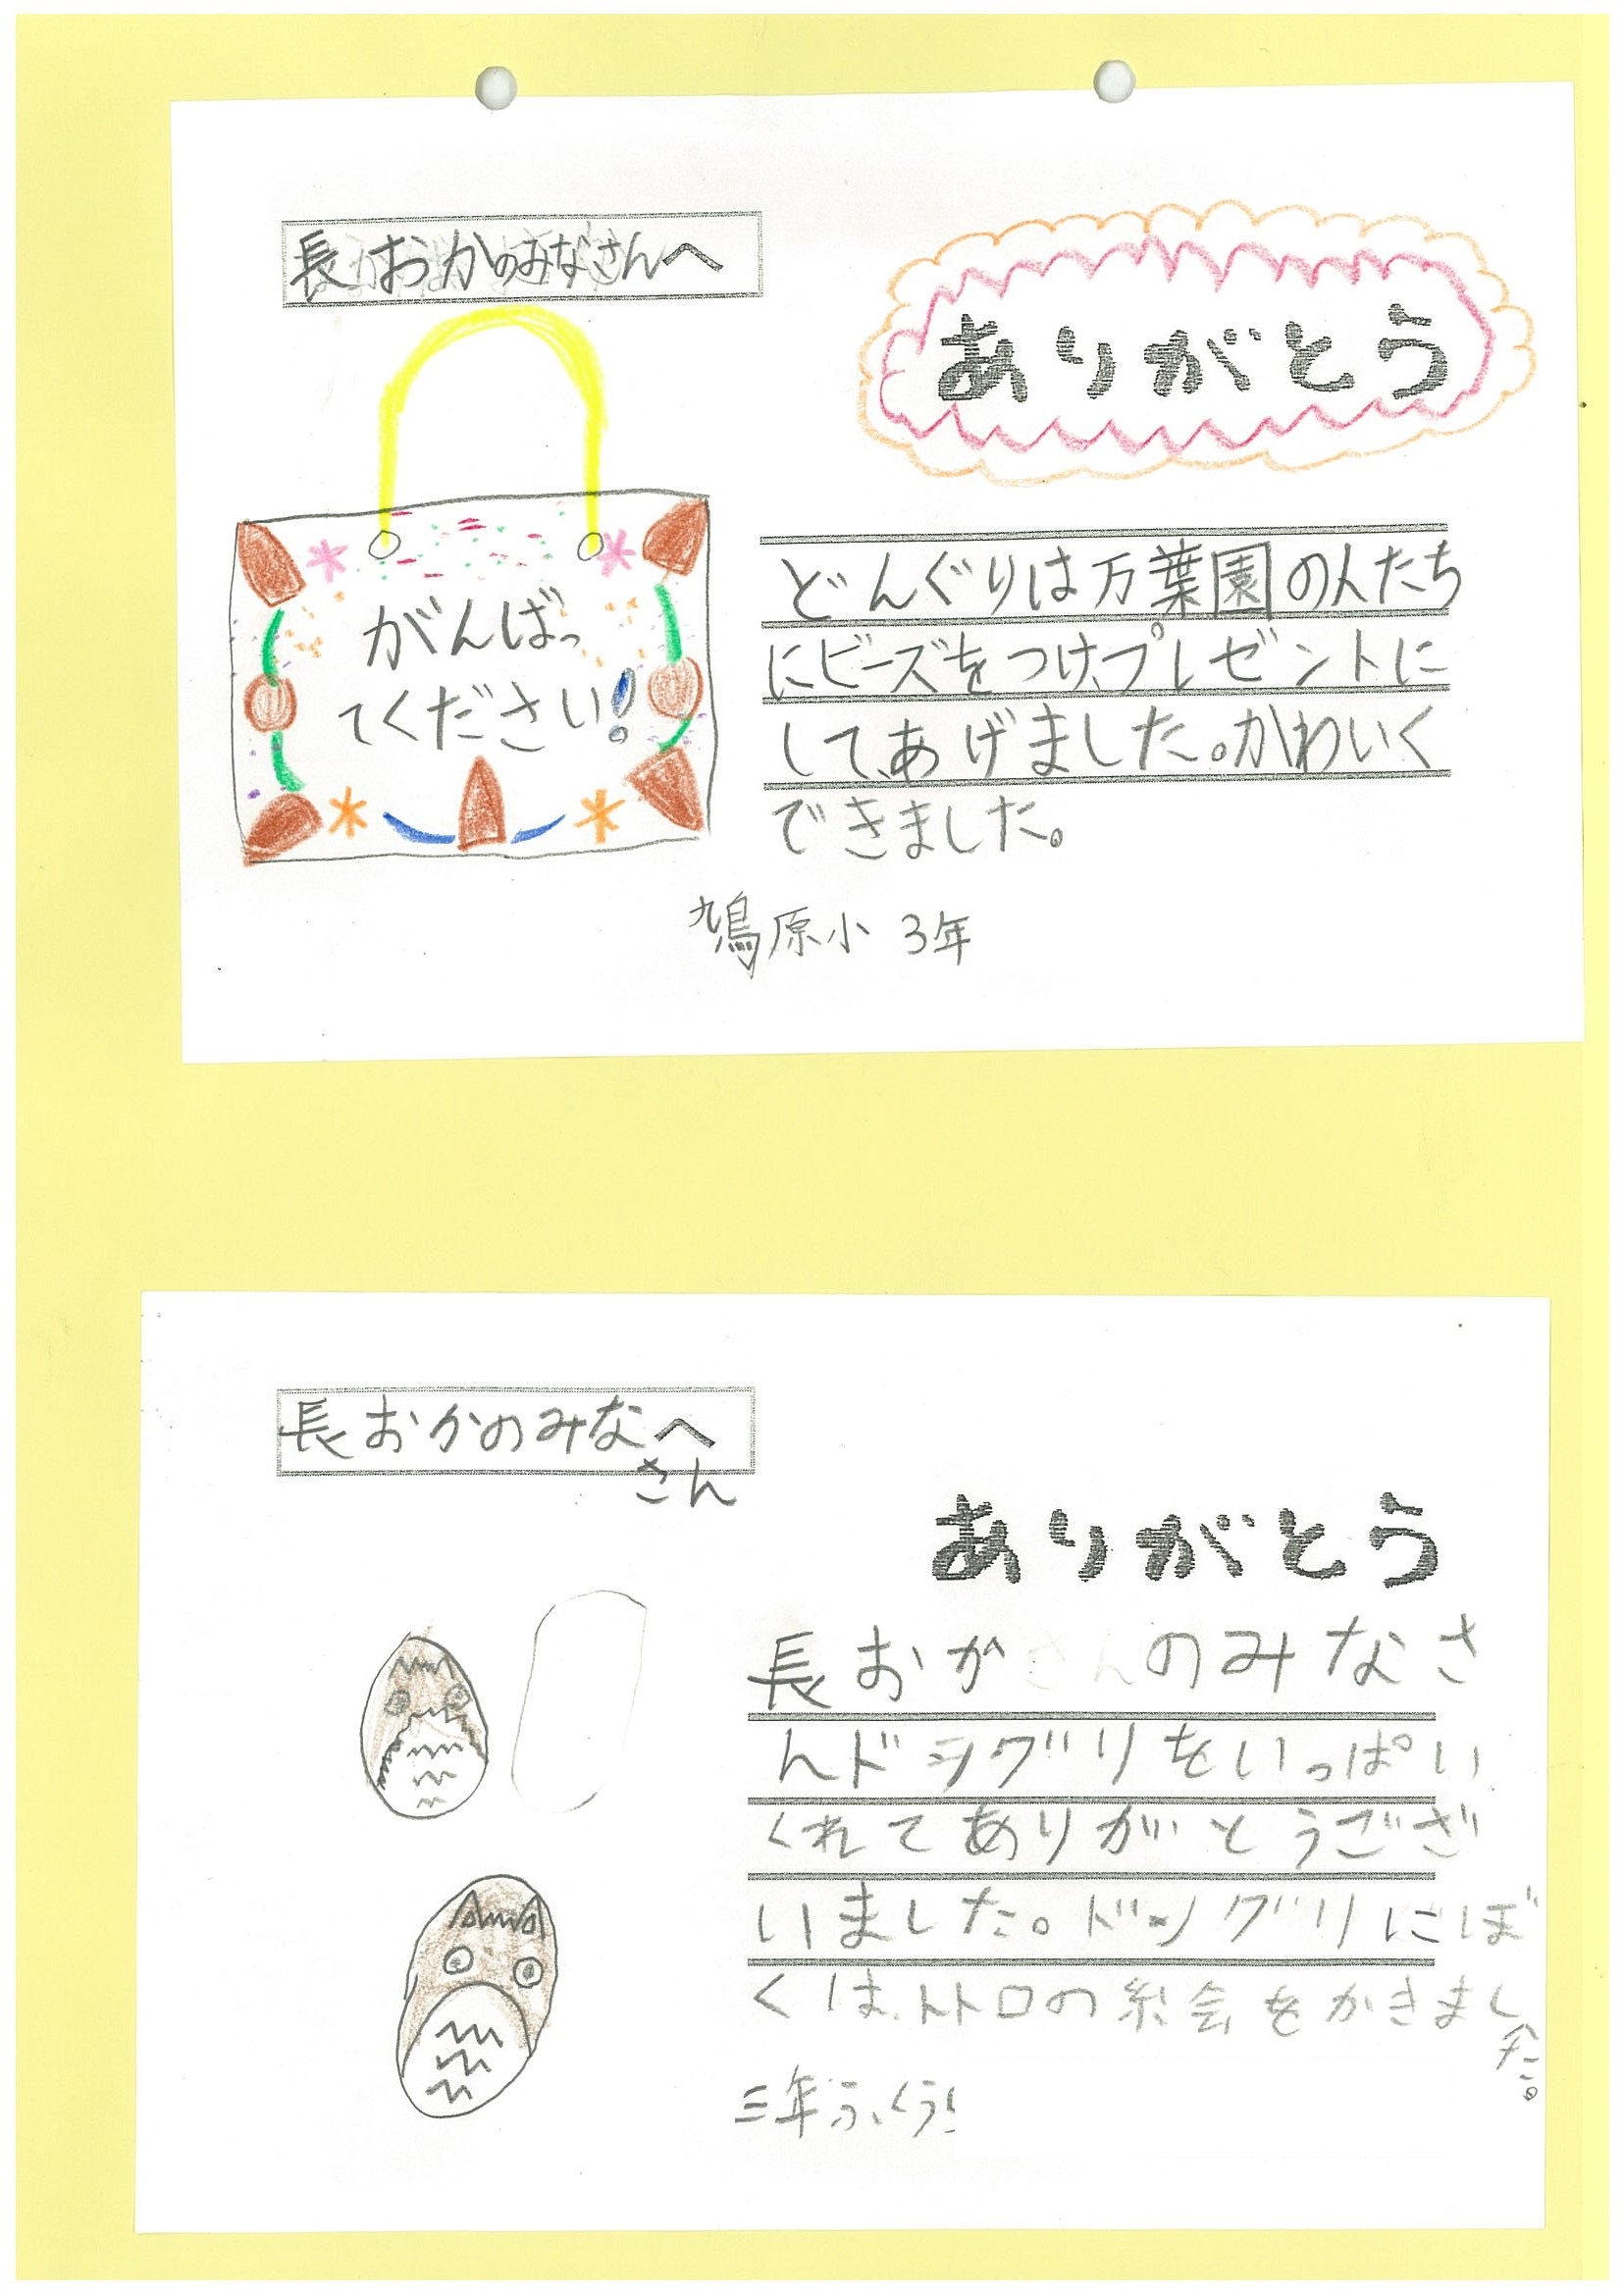 長おかのみなさんへ
ありがとう
がんばっ
てください!
どんぐりは万葉園の人たち
にビーズをつけ、プレゼントに
して、あげました。かわいく
できました。
鳩原小 3年
長おかのみなへ
さん
ありがとう
長おかのみなさ
んドングリをいっぱい
くれてありがとうござ
いました。ドングリにぼ
くは、トトロの絵をかきまし
た。
三年